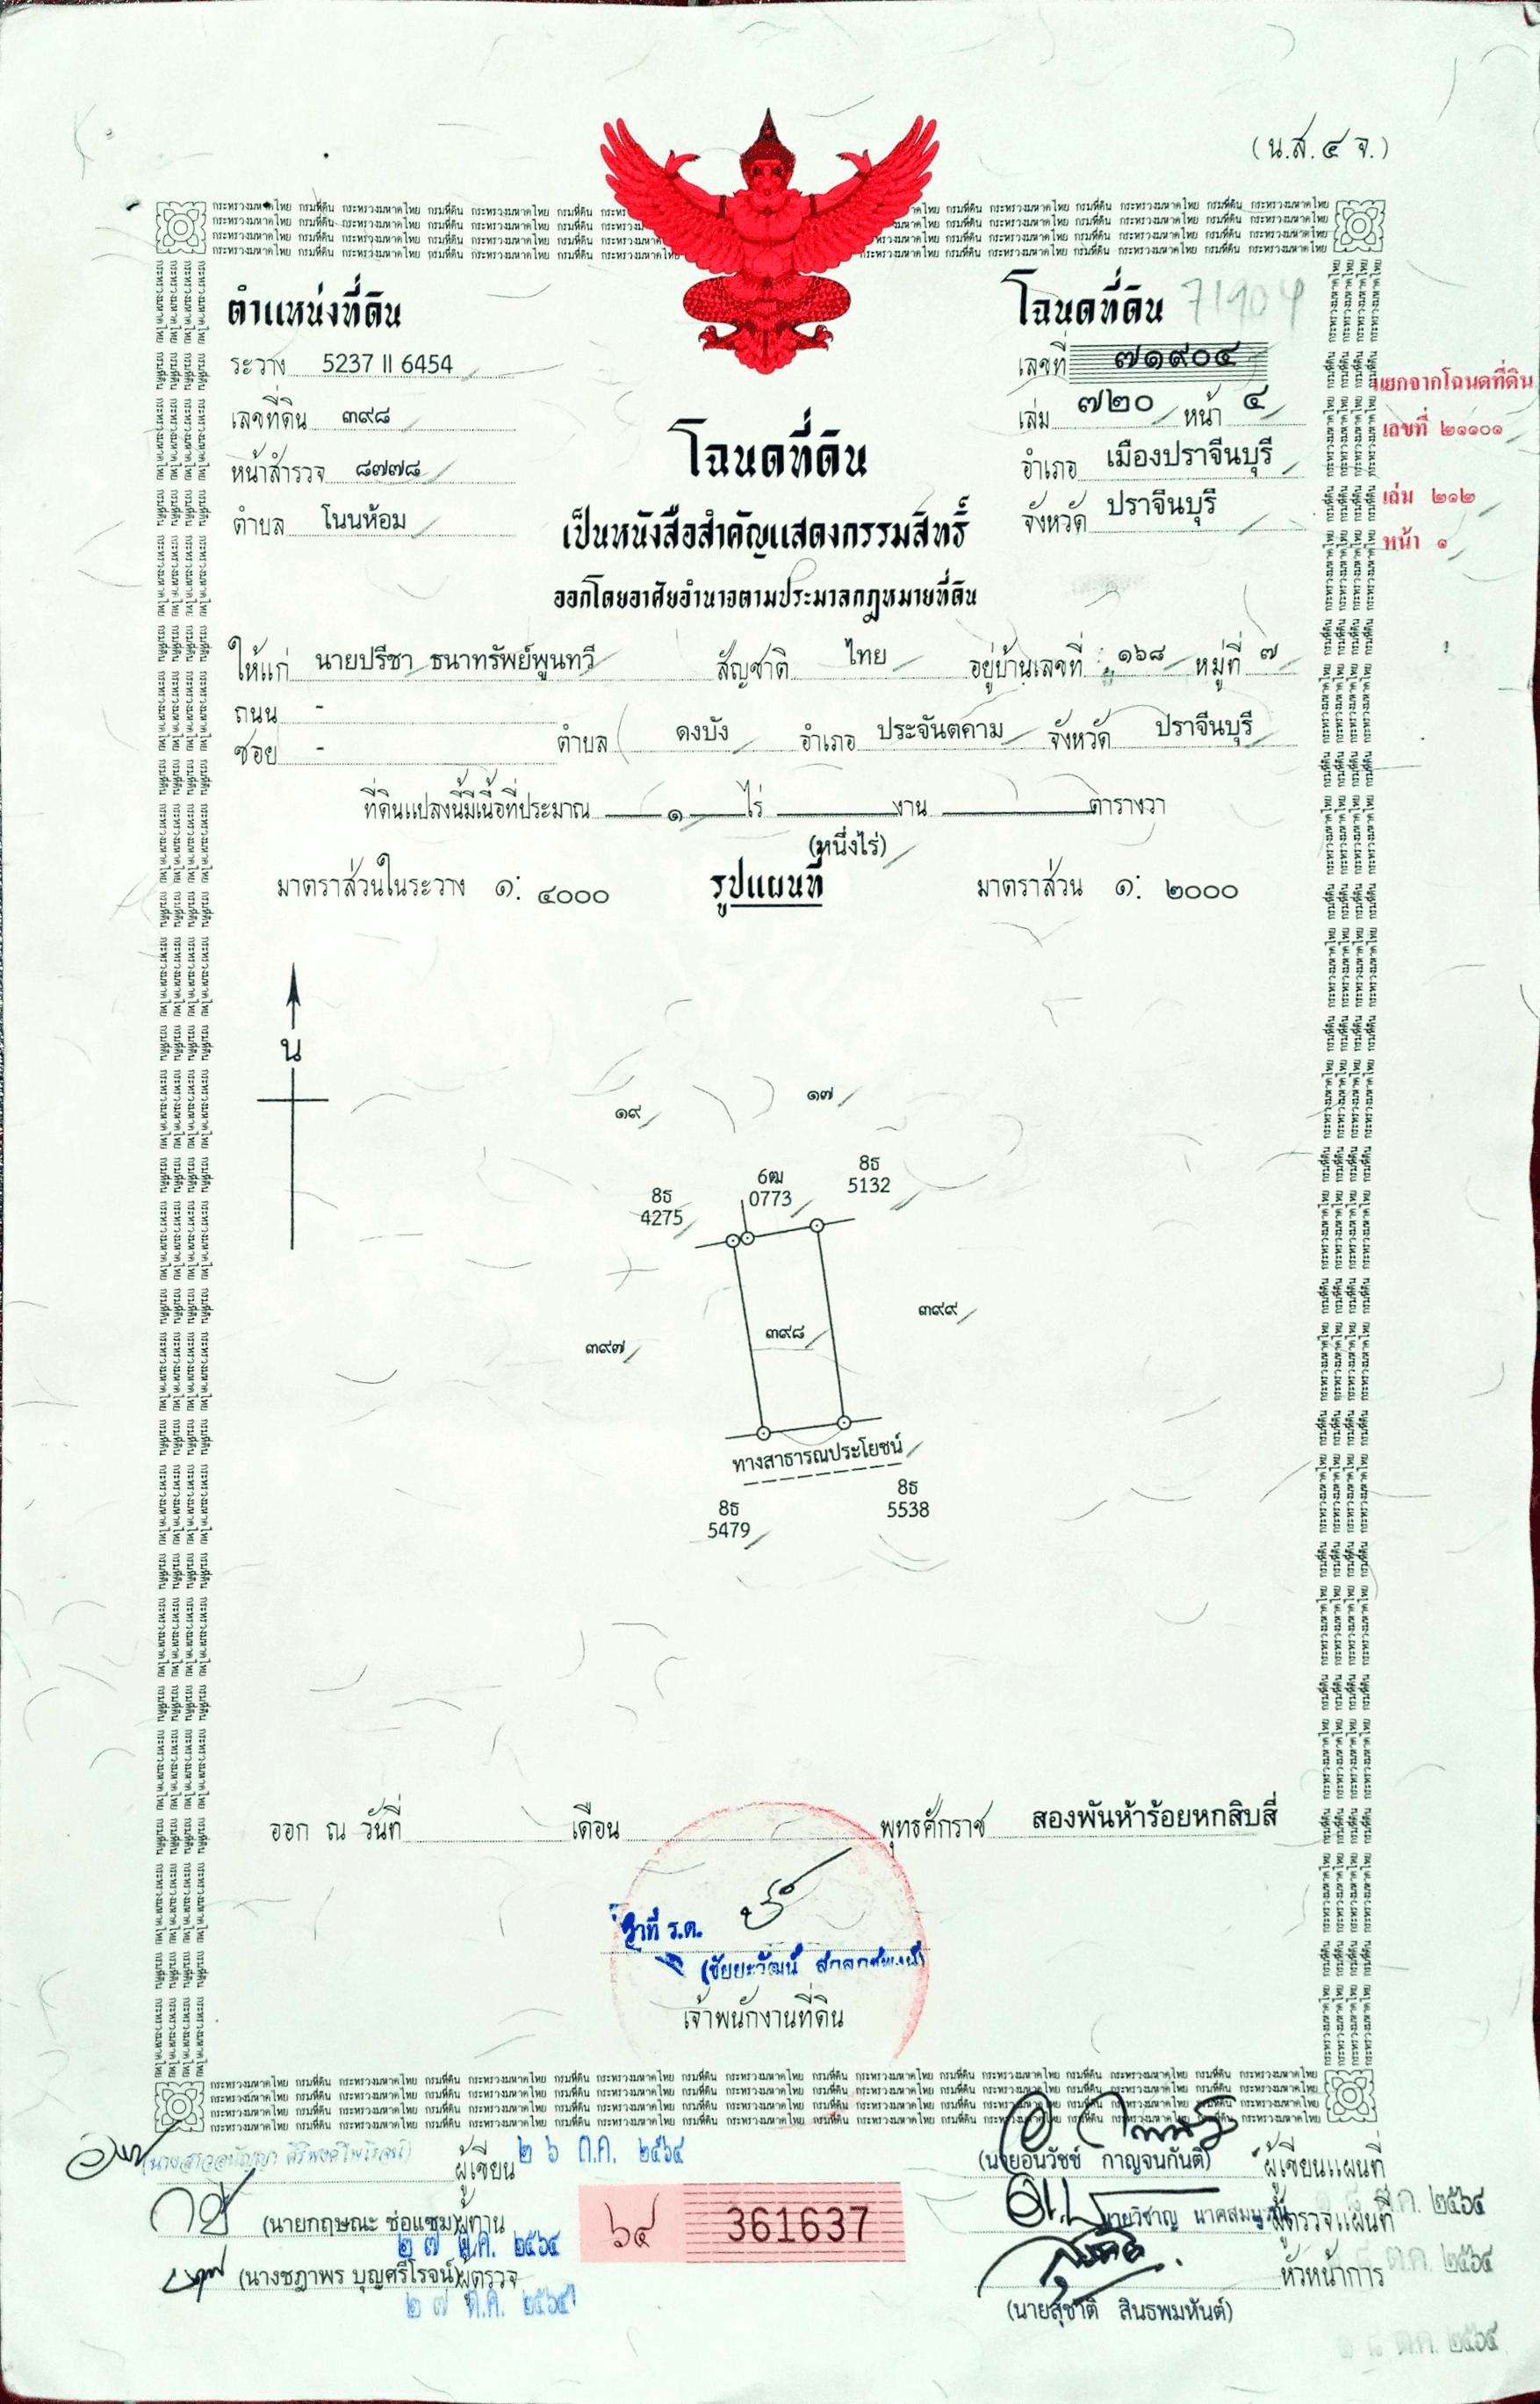 (น.ส.๔ จ.)
ตำแหน่งที่ดิน
ระวาง 5237 II 6454
เลขที่ดิน ๓๙๘
หน้าสำรวจ ๘๗๗๘
ตำบล โนนห้อม
โฉนดที่ดิน 71904
เลขที่ ๗๑๙๐๔
เล่ม ๗๒๐ หน้า ๔
อำเภอ เมืองปราจีนบุรี
จังหวัด ปราจีนบุรี
แยกจากโฉนดที่ดิน
เลขที่ ๒๑๑๐๑
เล่ม ๒๑๒
หน้า ๑
โฉนดที่ดิน
เป็นหนังสือสำคัญแสดงกรรมสิทธิ์
ออกโดยอาศัยอำนาจตามประมวลกฎหมายที่ดิน
ให้แก่ นายปรีชา ธนาทรัพย์พูนทวี สัญชาติ ไทย อยู่บ้านเลขที่ ๑๖๘ หมู่ที่ ๗
ถนน -
ซอย - ตำบล ดงบัง อำเภอ ประจันตคาม จังหวัด ปราจีนบุรี
ที่ดินแปลงนี้มีเนื้อที่ประมาณ ๑ ไร่ งาน ตารางวา
(หนึ่งไร่)
มาตราส่วนในระวาง ๑: ๔๐๐๐ รูปแผนที่ มาตราส่วน ๑: ๒๐๐๐
น
๑๙ ๑๗
8ธ 4275
6ฒ 0773
8ธ 5132
๓๙๗ ๓๙๘ ๓๙๙
ทางสาธารณประโยชน์
8ธ 5479
8ธ 5538
ออก ณ วันที่ เดือน พุทธศักราช สองพันห้าร้อยหกสิบสี่
ว่าที่ ร.ต.
(ชัยยะวัฒน์
เจ้าพนักงานที่ดิน
ผู้เขียน ๒๖ ต.ค. ๒๕๖๔
(นายกฤษณะ ช่อแซม) ผู้ทาน
๒๗ ต.ค. ๒๕๖๔
(นางชฎาพร บุญศรีโรจน์) ผู้ตรวจ
๒๗ ต.ค. ๒๕๖๔
๖๔ 361637
(นายอนวัชช์ กาญจนกันติ) ผู้เขียนแผนที่
๑๘ ต.ค. ๒๕๖๔
นายวิชาญ ผู้ตรวจแผนที่
๑๘ ต.ค. ๒๕๖๔
หัวหน้าการ
(นายสุชาติ สินธพมหันต์)
๑๘ ต.ค. ๒๕๖๔